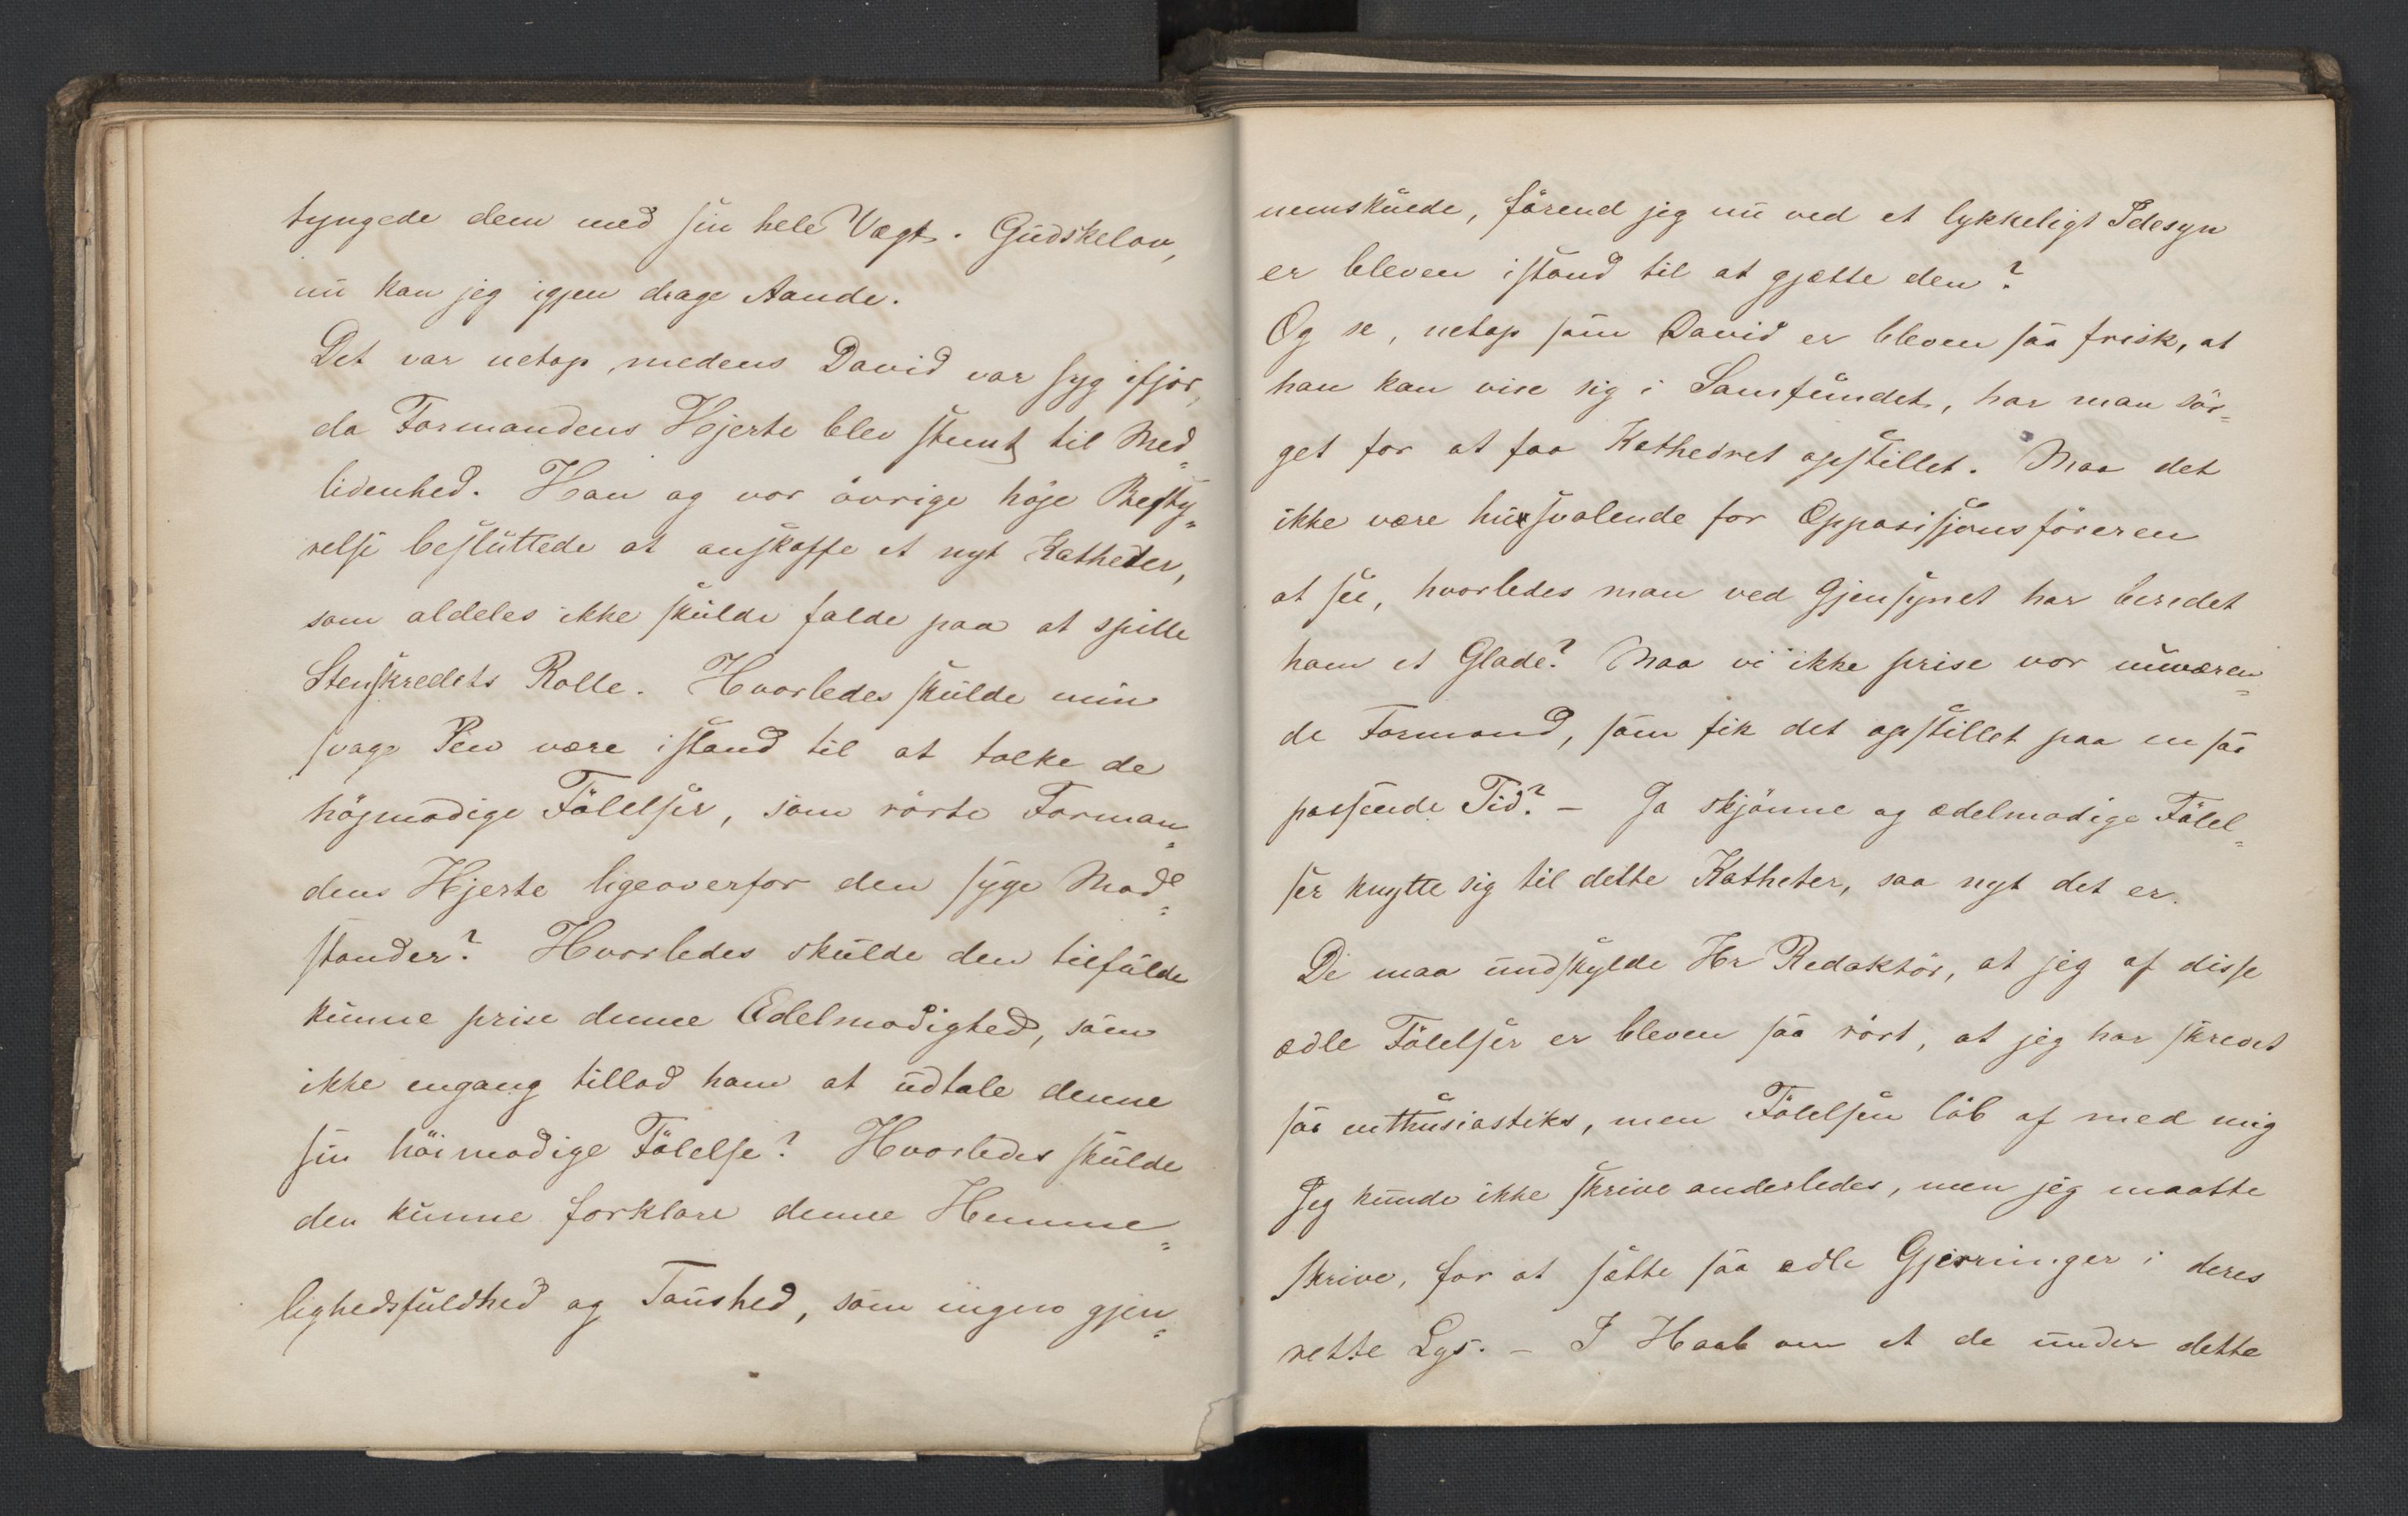 tyngede dem med sin hele Vægt. Gudskelov,
nu kan jeg igjen drage Aande.
Det var netop medens David var syg ifjor,
da Formandens Hjerte blev stemt til Med=
lidenhed. Han og vor övrige höje Besty=
relse besluttede at anskaffe et nyt Katheder,
som aldeles ikke skulde falde paa at spille
Stenskredets Rolle. Hvorledes skulde min
svage Pen være istand til at tolke de
höjmodige Fölelser, som rörte Forman=
dens Hjerte ligeoverfor den syge Mod=
stander? Hvorledes skulde den tilfulde
kunne prise denne Ædelmodighed, som
ikke engang tillod ham at udtale denne
sin höimodige Fölelse? Hvorledes skulde
den kunne forklare denne Hemme=
lighedsfuldhed og Taushed, som ingen gjen=
nemskuede, förend jeg nu ved et lykkeligt Idesyn
er bleven istand til at gjætte den?
Og se, netop som David er bleven saa frisk, at
han kan vise sig i Samfundet, har man sör=
get for at faa Kathedret opstillet. Maa det
ikke være husvalende for Opposisjonsföreren
at see, hvorledes man ved Gjensynet har beredet
ham et Glæde? Maa vi ikke prise vor nuværen=
de Formand, som fik det opstillet paa en saa
passende Tid? – Ja skjönne og ædelmodige Fölel=
ser knytte sig til dette Katheter, saa nyt det er.
De maa undskylde Hr Redaktör, at jeg af disse
ædle Fölelser er bleven saa rört, at jeg har skrevet
saa enthusiastisks, men Fölelsen löb af med mig
Jeg kunde ikke skrive anderledes, men jeg maatte
skrive, for at sætte saa ædle Gjerninger i deres
rette Lys. – I Haab om at de under dette